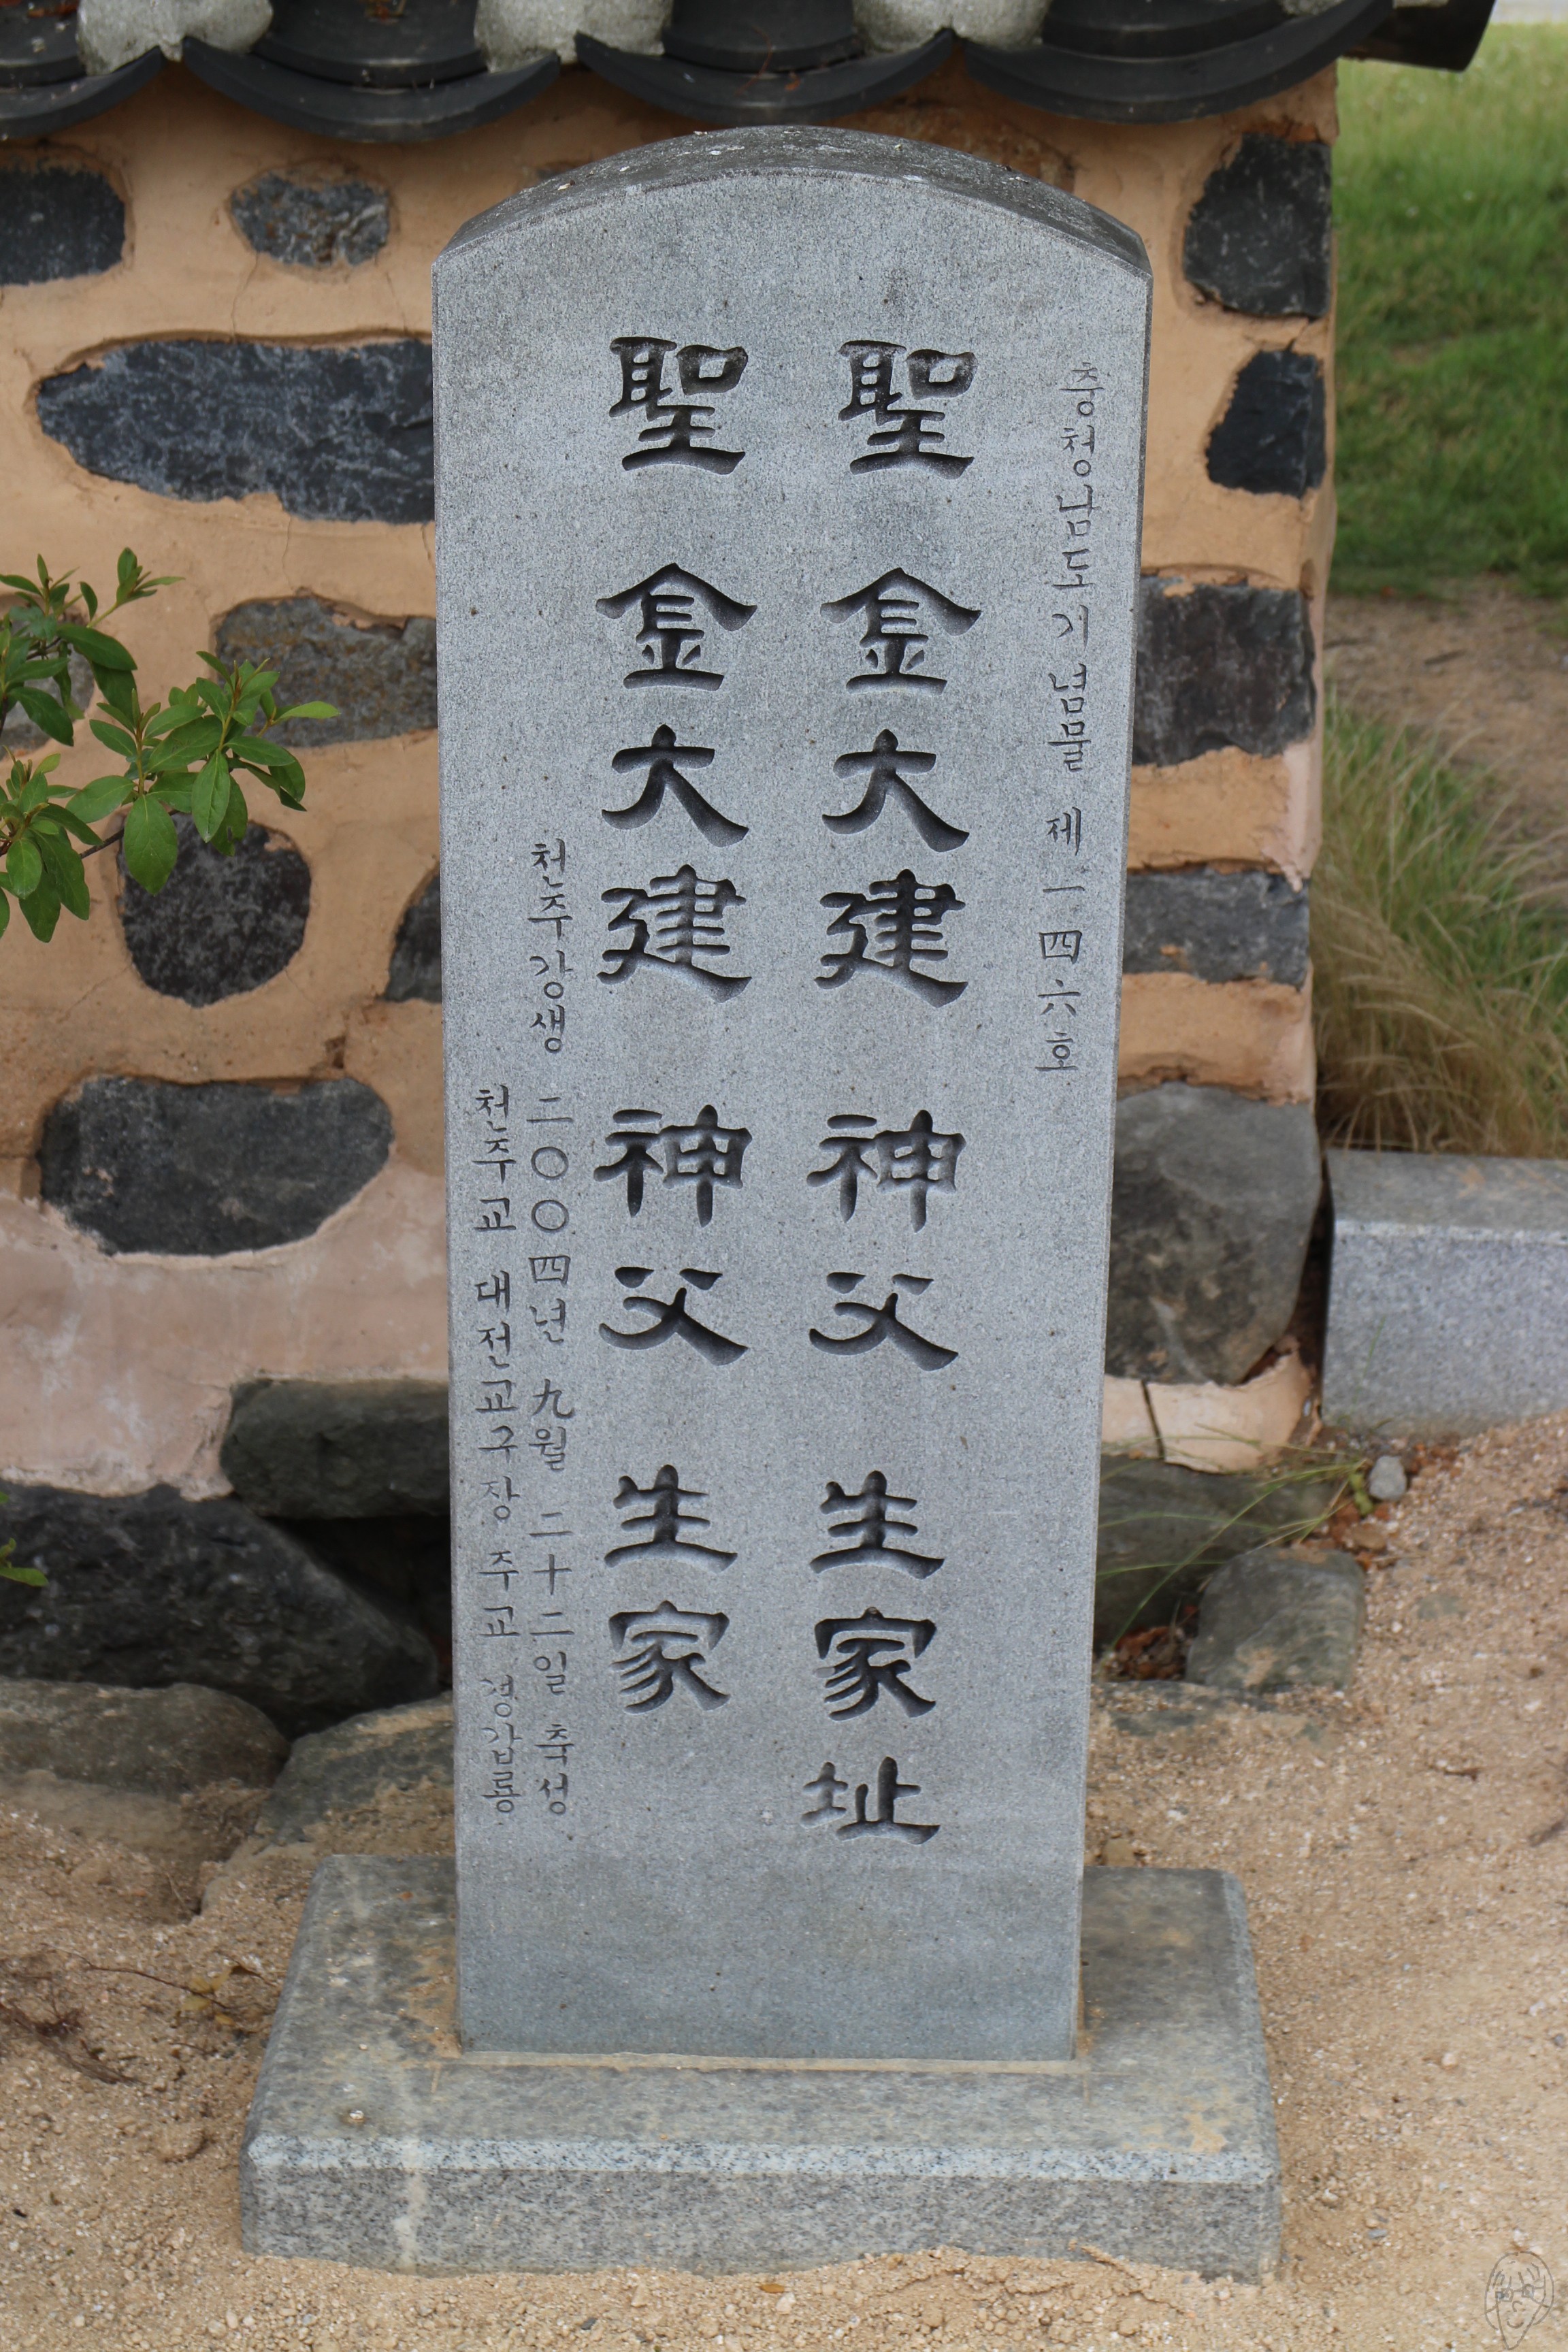 충청남도기념물 제一四六호
聖 金大建 神父 生家址
聖 金大建 神父 生家
천주강생 二〇〇四년 九월 二十二일 축성
천주교 대전교구장 주교 경갑룡